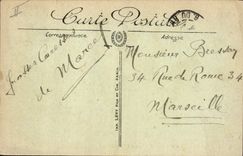 Carte Postale
Correspondance
Adresse
de Maroc
Monsieur Bressoy
34 Rue de Rome 34
Marseille
IMP. LÉVY FILS ET CIE PARIS